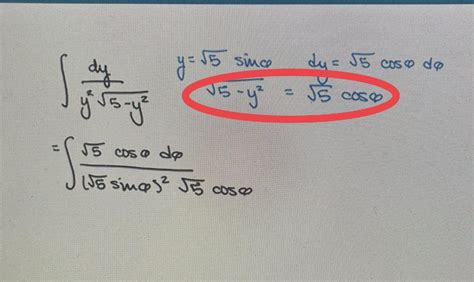 ∫ dy / (y² √(5-y²))   y = √5 sinφ   dy = √5 cosφ dφ
√(5-y²) = √5 cosφ
= ∫ √5 cosφ dφ / ((√5 sinφ)² √5 cosφ)